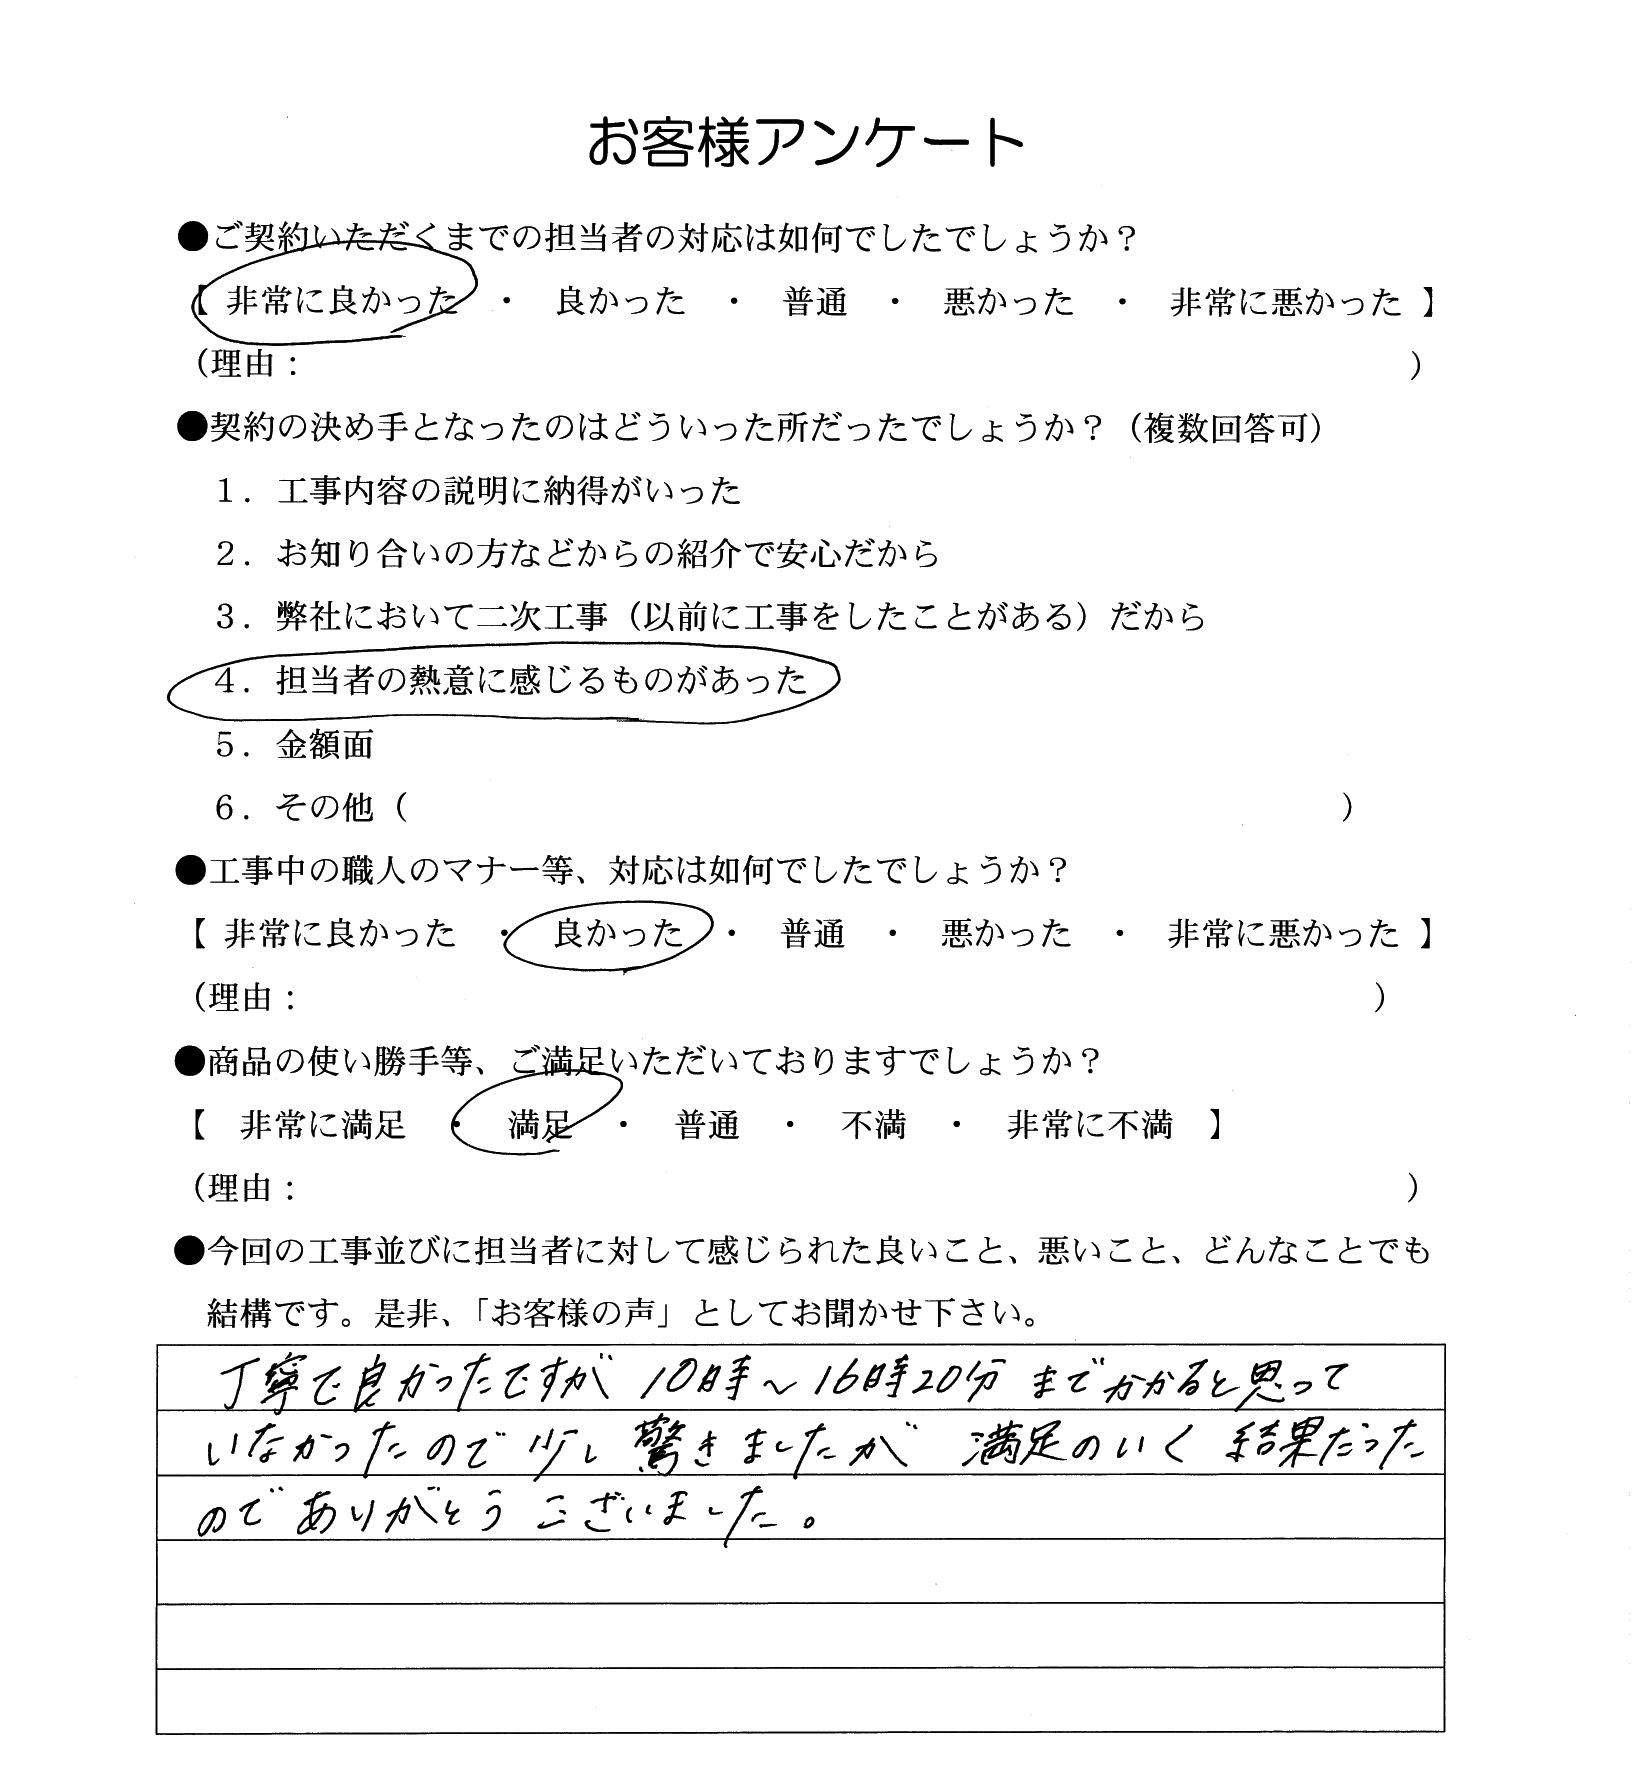 お客様アンケート
●ご契約いただくまでの担当者の対応は如何でしたでしょうか？
【 非常に良かった ・ 良かった ・ 普通 ・ 悪かった ・ 非常に悪かった 】
（理由： ）
●契約の決め手となったのはどういった所だったでしょうか？（複数回答可）
１．工事内容の説明に納得がいった
２．お知り合いの方などからの紹介で安心だから
３．弊社において二次工事（以前に工事をしたことがある）だから
４．担当者の熱意に感じるものがあった
５．金額面
６．その他（ ）
●工事中の職人のマナー等、対応は如何でしたでしょうか？
【 非常に良かった ・ 良かった ・ 普通 ・ 悪かった ・ 非常に悪かった 】
（理由： ）
●商品の使い勝手等、ご満足いただいておりますでしょうか？
【 非常に満足 ・ 満足 ・ 普通 ・ 不満 ・ 非常に不満 】
（理由： ）
●今回の工事並びに担当者に対して感じられた良いこと、悪いこと、どんなことでも
結構です。是非、「お客様の声」としてお聞かせ下さい。
丁寧で良かったですが 10時～16時20分 までかかると思って
いなかったので 少し 驚きましたが 満足のいく 結果だった
ので ありがとう ございました。